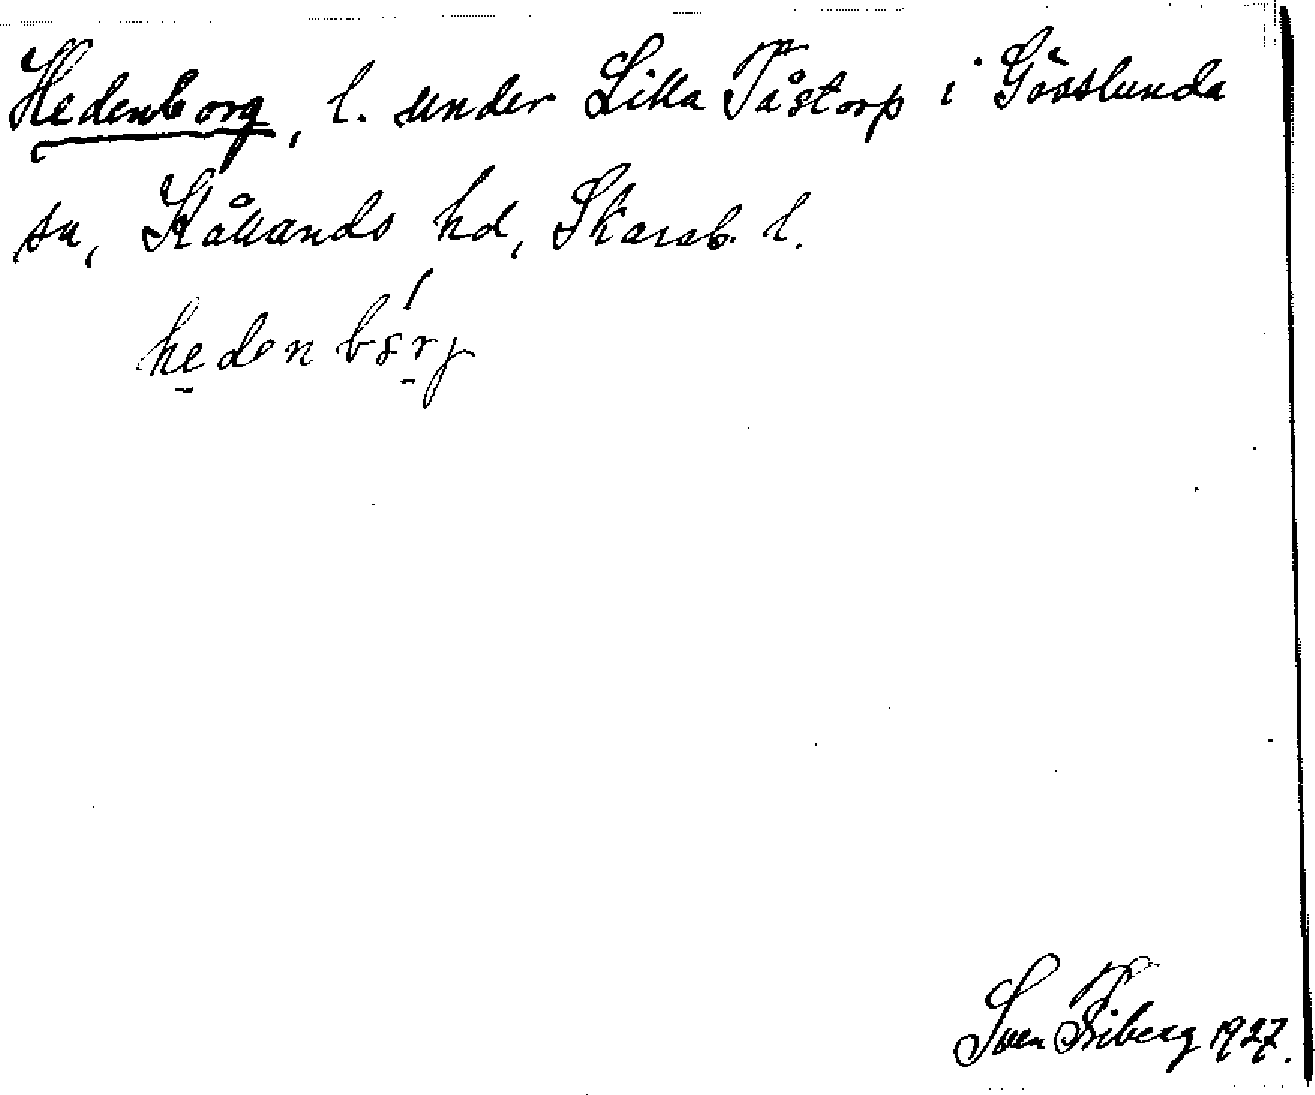 Hedenborg, l. under Lilla Tåstorp i Gösslunda
sn, Kållands hd, Skarab. l.
hedenbórj
Sven Friberg 1927.